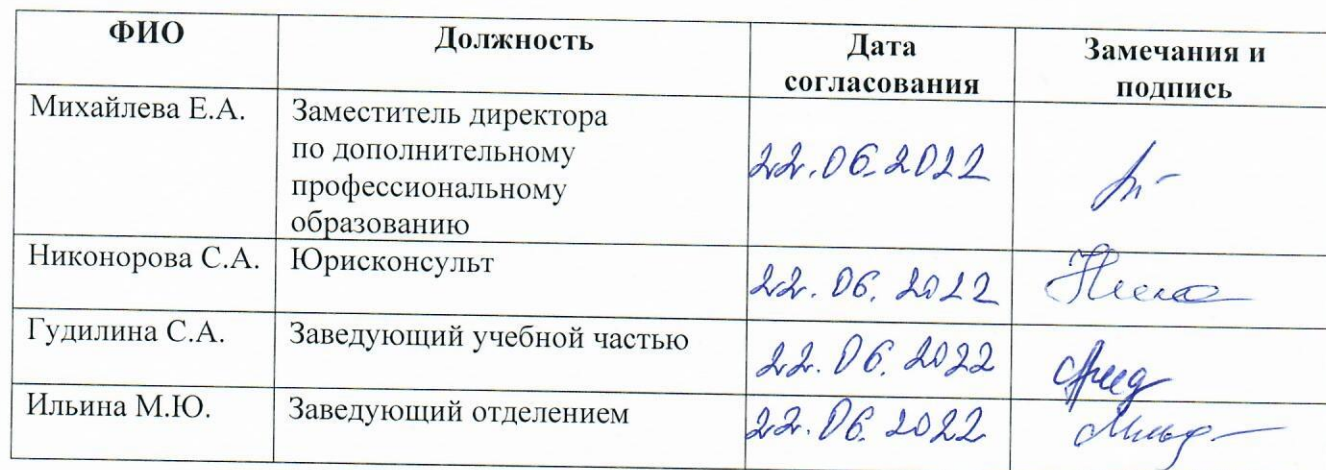 ФИО
Должность
Дата
согласования
Замечания и
подпись
Михайлева Е.А.
Заместитель директора
по дополнительному
профессиональному
образованию
22.06.2022
Никонорова С.А.
Юрисконсульт
22.06.2022
Гудилина С.А.
Заведующий учебной частью
22.06.2022
Ильина М.Ю.
Заведующий отделением
22.06.2022